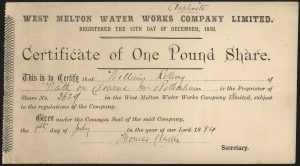 Duplicate
WEST MELTON WATER WORKS COMPANY LIMITED.
REGISTERED THE 13TH DAY OF DECEMBER, 1880.
Certificate of One Pound Share.
This is to Certify that William
of Wath on Dearne Nr Rotherham is the Proprietor of
Share No. 3679 in the West Melton Water Works Company Limited, subject
to the regulations of the Company.
Given under the Common Seal of the said Company,
the day of July in the year of our Lord 1884
Thomas
Secretary.